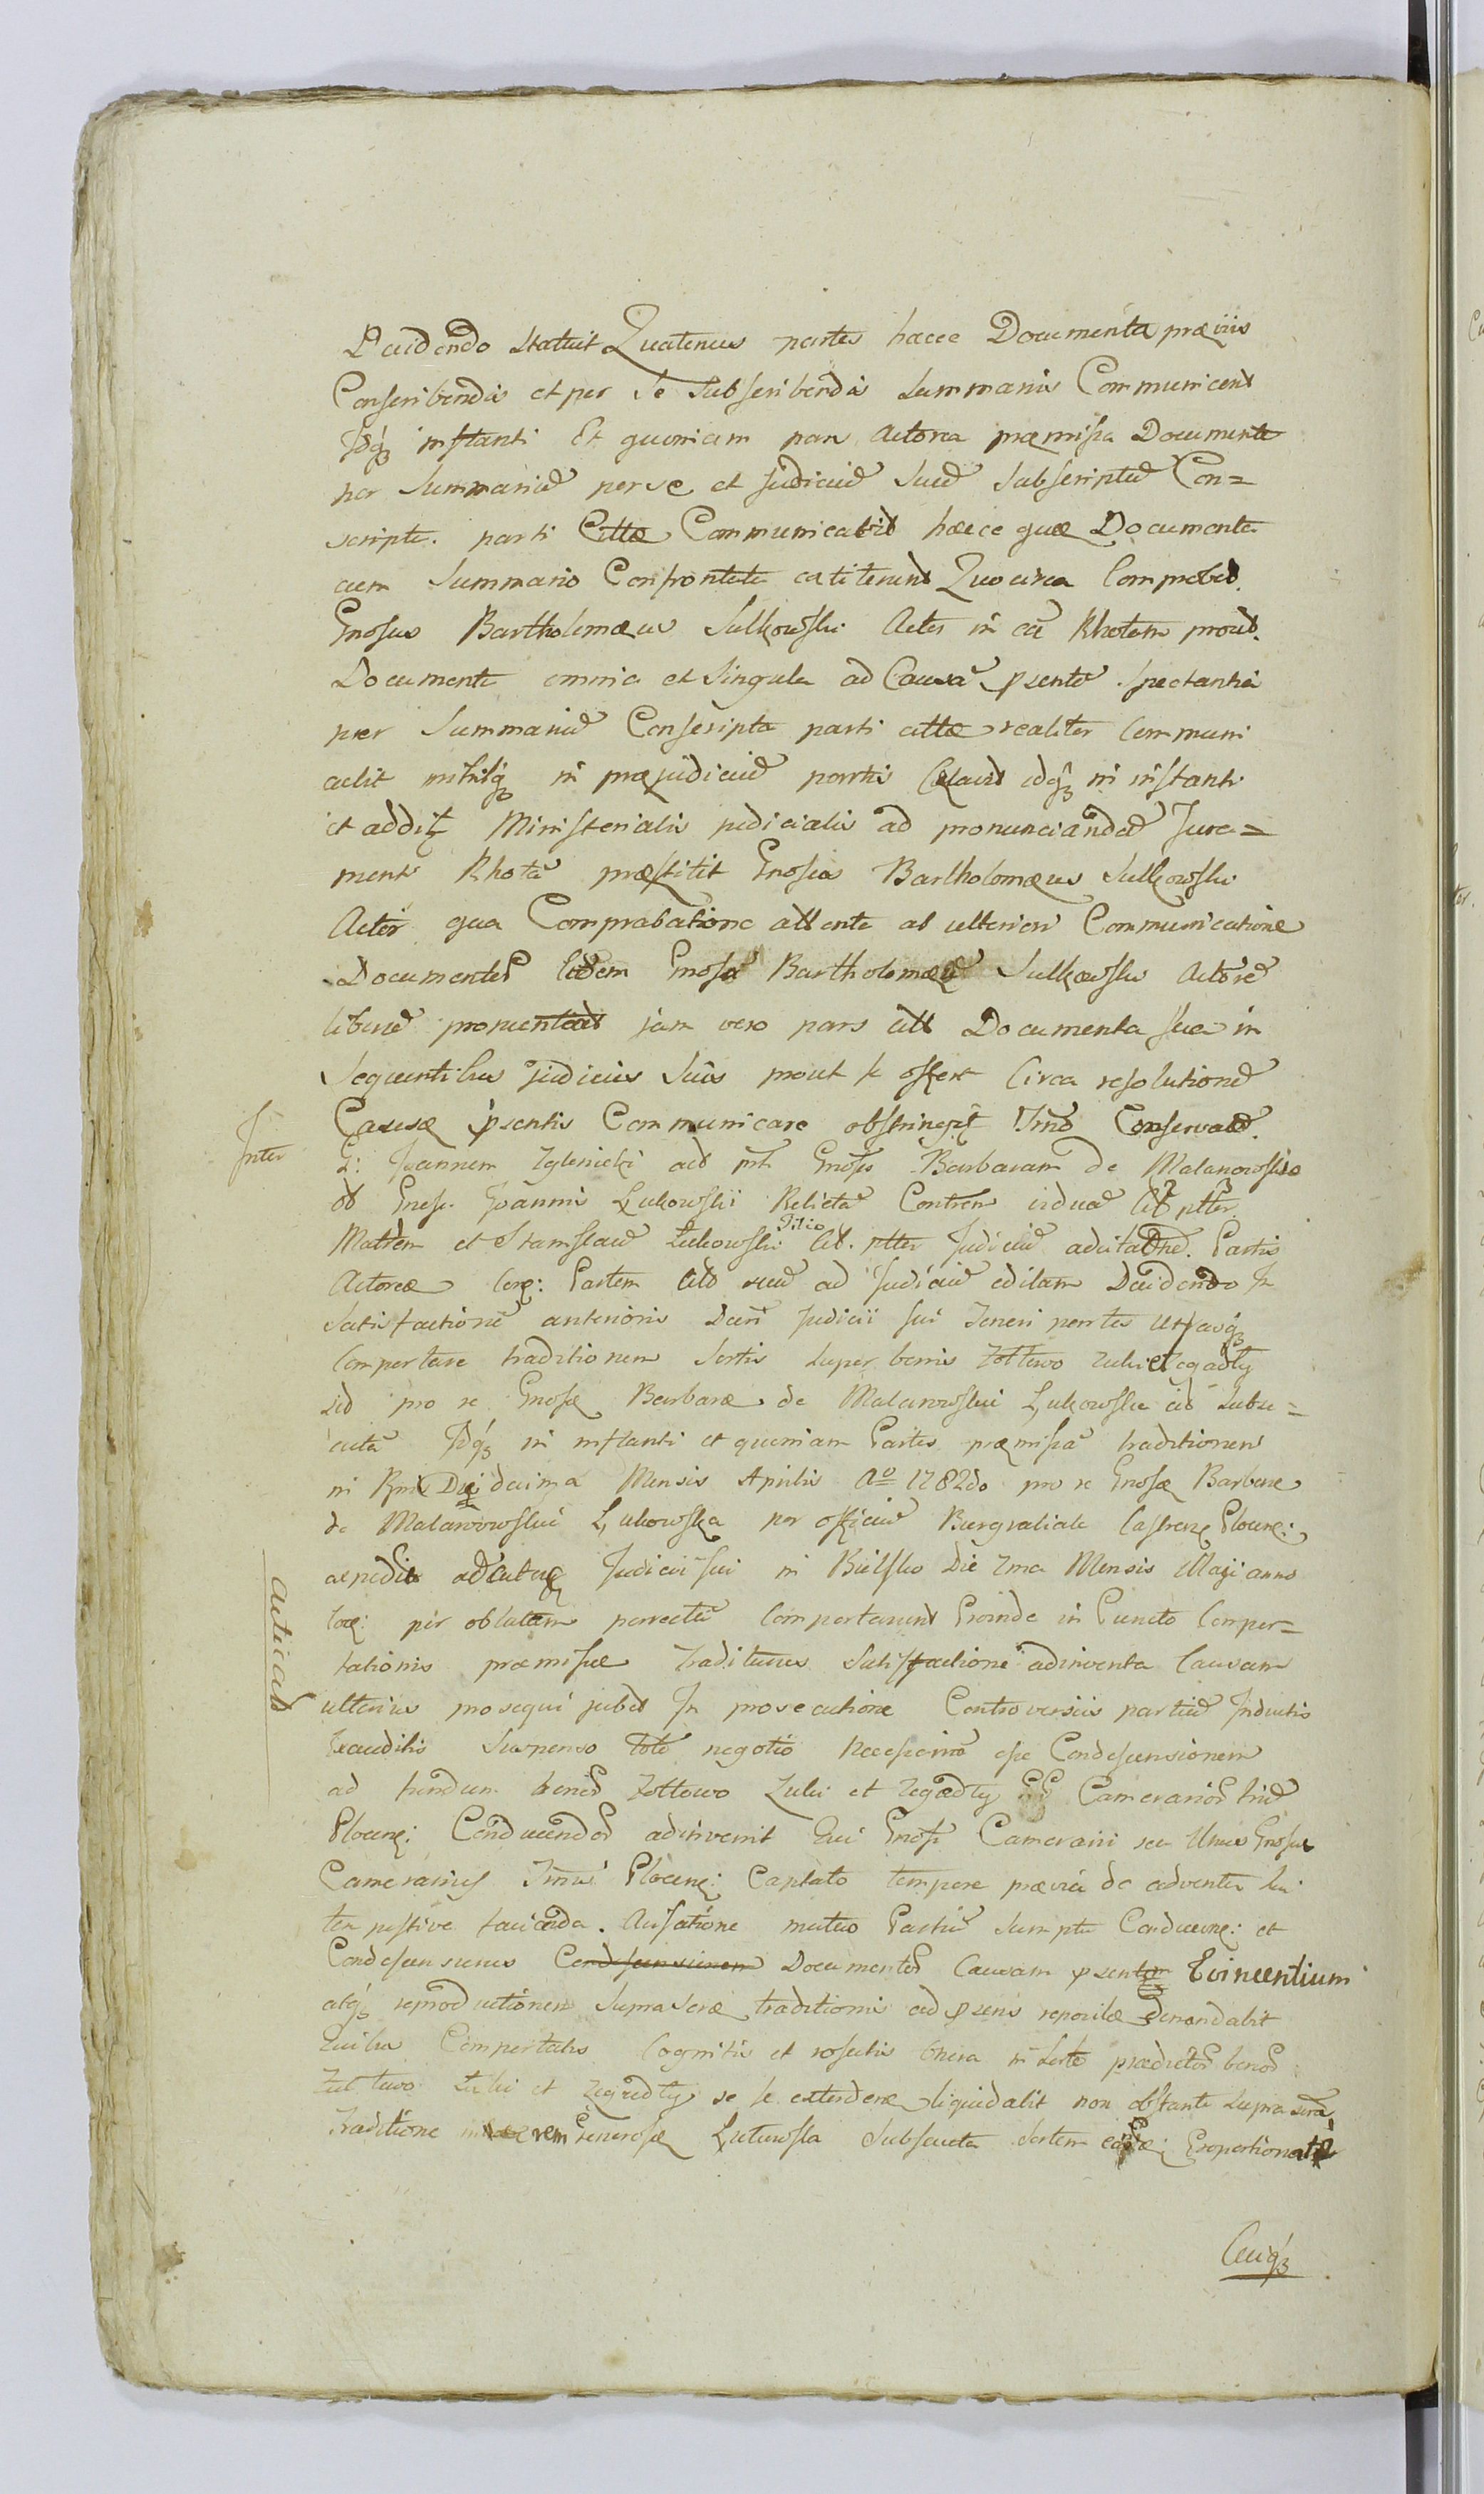 Decidendo statuit Quatenus partes haece Documenta præviis
Conscribendis et per Se Subscribendis Summariis Communicent
Idq3 instanti Et quoniam pars Actorea præmissa Documenta
per Summariũ per se et Judiciũ Suũ Subscriptũ Con=
scripta parti Cittæ Communicavit haece quæ Documenta
cum Summario Confrontata extiterunt Quocirca Comprobet.
Gnosus Bartholomæus Sulkowski Actor in eã Rhotam prout.
Documenta omnia et Singula ad Causã psentẽ Spectantia
per Summariũ Conscripta parti cittæ realiter Communi
cavit nihilq3 in præjudiciũ partis Celavit idq3 in instanti
et addit9 Ministerialis judicialis ad pronunciandã Jura=
menti Rhotã præstitit Gnosus Bartholomæus Sulkowski
Actor qua Comprobatione attenta ab ulteriori Communicatione
Documentor Eundem Gnosũ Bartholomæũ Sulkowski Actorẽ
liberũ pronuntiat jam vero pars citt Documenta sua in
Sequentibus judiciis Suis prout se offert Circa resolutionẽ
Causæ psentis Communicare obstringit Tmõ Conservato.
Inter
G: Joannem Zglenicki act int Gnosã Barbaram de Malanowskie
ol Gnosi Joannis Łukowski Relictã Conthem viduã Cit ptter
Matrem et Stanislaũ Łukowski Filio Cit. ptter Judiciũ ad citatnẽ. Partis
Actoreæ Cora: Partem Cit suã ad Judiciũ editam Decidendo In
Satisfactionẽ anterioris Decri Judicii sui Teneri partes utrasq3
Comportare traditionem Sortis super bonis Żottowo Zuki et Zegadły
sub pro re Gnosæ Barbaræ de Malanowskie Łukowska cit Subse=
cutã Idq3 in instanti et quoniam Partes præmissã traditionem
in Rmã Die decima Mensis Aprilis Ao 1782do pro re Gnosæ Barbaræ
de Malanowskie Łukowska per officiũ Burgrabiale Castrense Plocens:
expedit ad Actus Judicii sui in Bielsko Die 7ma Mensis Maji anno
eoq: per oblatam porrectã Comportarunt Proinde in Puncto Compor=
tationis præmissæ Traditionis Satisfactione adinventa Causam
ulterius prosequi jubet In prosecutione Controversiis partiũ Inductis
Exauditis Suspenso toto negotio Necessariã esse Condescensionem
ad fundum bonor Żottowo Zuki et Zegadły GG Camerarior Triũ
Plocens: Conducendor adinvenit Qui Gnosi Camerarii seu Unus Gnosus
Camerarius Trrũ Plocens: Captato tempore prævia de adventu sui
tempestive facienda. Avisatione mutuo Partiũ Sumptu Conducens: et
Condescensurus Condescensionem Documentor Causam psentem Evincentium
atq3 reproductionem Suprascræ traditionis ad psens repositæ demandabit
Quibus Comportatis Cognitis et revisis Onera in Sorte prædictor bonor
Żottowo Zuki et Zegadły se se extendere liquidabit non obstante Suprascra
Traditione in rem Generosæ Łukowska Subsecuta Sortem eosdæ: Proportionatæ
Cuiq3
Acticat